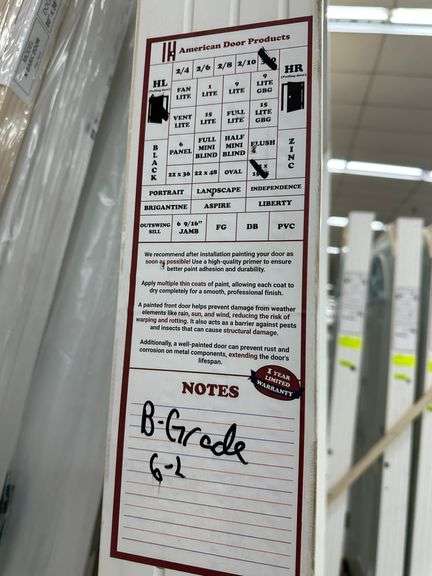 American Door Products
HL 2/4 2/6 2/8 2/10 HR
FAN LITE 1 LITE 9 LITE 9 LITE GBG
VENT LITE 15 LITE FULL LITE 15 LITE GBG
BLACK 6 PANEL FULL MINI BLIND HALF MINI BLIND FLUSH ZINC
22 x 36 22 x 48 OVAL
PORTRAIT LANDSCAPE INDEPENDENCE
BRIGANTINE ASPIRE LIBERTY
OUTSWING SILL 6 9/16" JAMB FG DB PVC
We recommend after installation painting your door as
soon as possible! Use a high-quality primer to ensure
better paint adhesion and durability.
Apply multiple thin coats of paint, allowing each coat to
dry completely for a smooth, professional finish.
A painted front door helps prevent damage from weather
elements like rain, sun, and wind, reducing the risk of
warping and rotting. It also acts as a barrier against pests
and insects that can cause structural damage.
Additionally, a well-painted door can prevent rust and
corrosion on metal components, extending the door's
lifespan.
1 YEAR
LIMITED
WARRANTY
NOTES
B-Grade
6-2